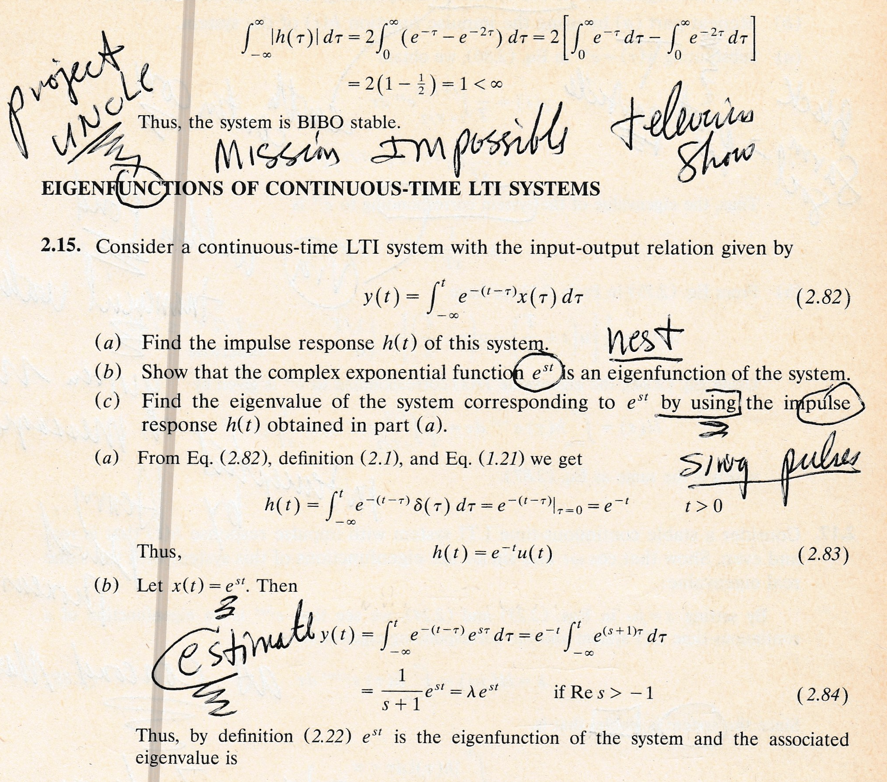 ∫_{-∞}^{∞} |h(τ)| dτ = 2∫_0^∞ (e^{-τ} − e^{-2τ}) dτ = 2[∫_0^∞ e^{-τ} dτ − ∫_0^∞ e^{-2τ} dτ]
= 2(1 − ½) = 1 < ∞
project
UNCLE
Thus, the system is BIBO stable.
Mission Impossible
television
Show
EIGENFUNCTIONS OF CONTINUOUS-TIME LTI SYSTEMS
2.15. Consider a continuous-time LTI system with the input-output relation given by
y(t) = ∫_{-∞}^{t} e^{-(t-τ)} x(τ) dτ (2.82)
(a) Find the impulse response h(t) of this system.
nest
(b) Show that the complex exponential function e^{st} is an eigenfunction of the system.
(c) Find the eigenvalue of the system corresponding to e^{st} by using the impulse
response h(t) obtained in part (a).
(a) From Eq. (2.82), definition (2.1), and Eq. (1.21) we get
pulses
h(t) = ∫_{-∞}^{t} e^{-(t-τ)} δ(τ) dτ = e^{-(t-τ)}|_{τ=0} = e^{-t} t > 0
Thus, h(t) = e^{-t}u(t) (2.83)
(b) Let x(t) = e^{st}. Then
estimate
y(t) = ∫_{-∞}^{t} e^{-(t-τ)} e^{sτ} dτ = e^{-t} ∫_{-∞}^{t} e^{(s+1)τ} dτ
= 1/(s+1) e^{st} = λe^{st} if Re s > −1 (2.84)
Thus, by definition (2.22) e^{st} is the eigenfunction of the system and the associated
eigenvalue is